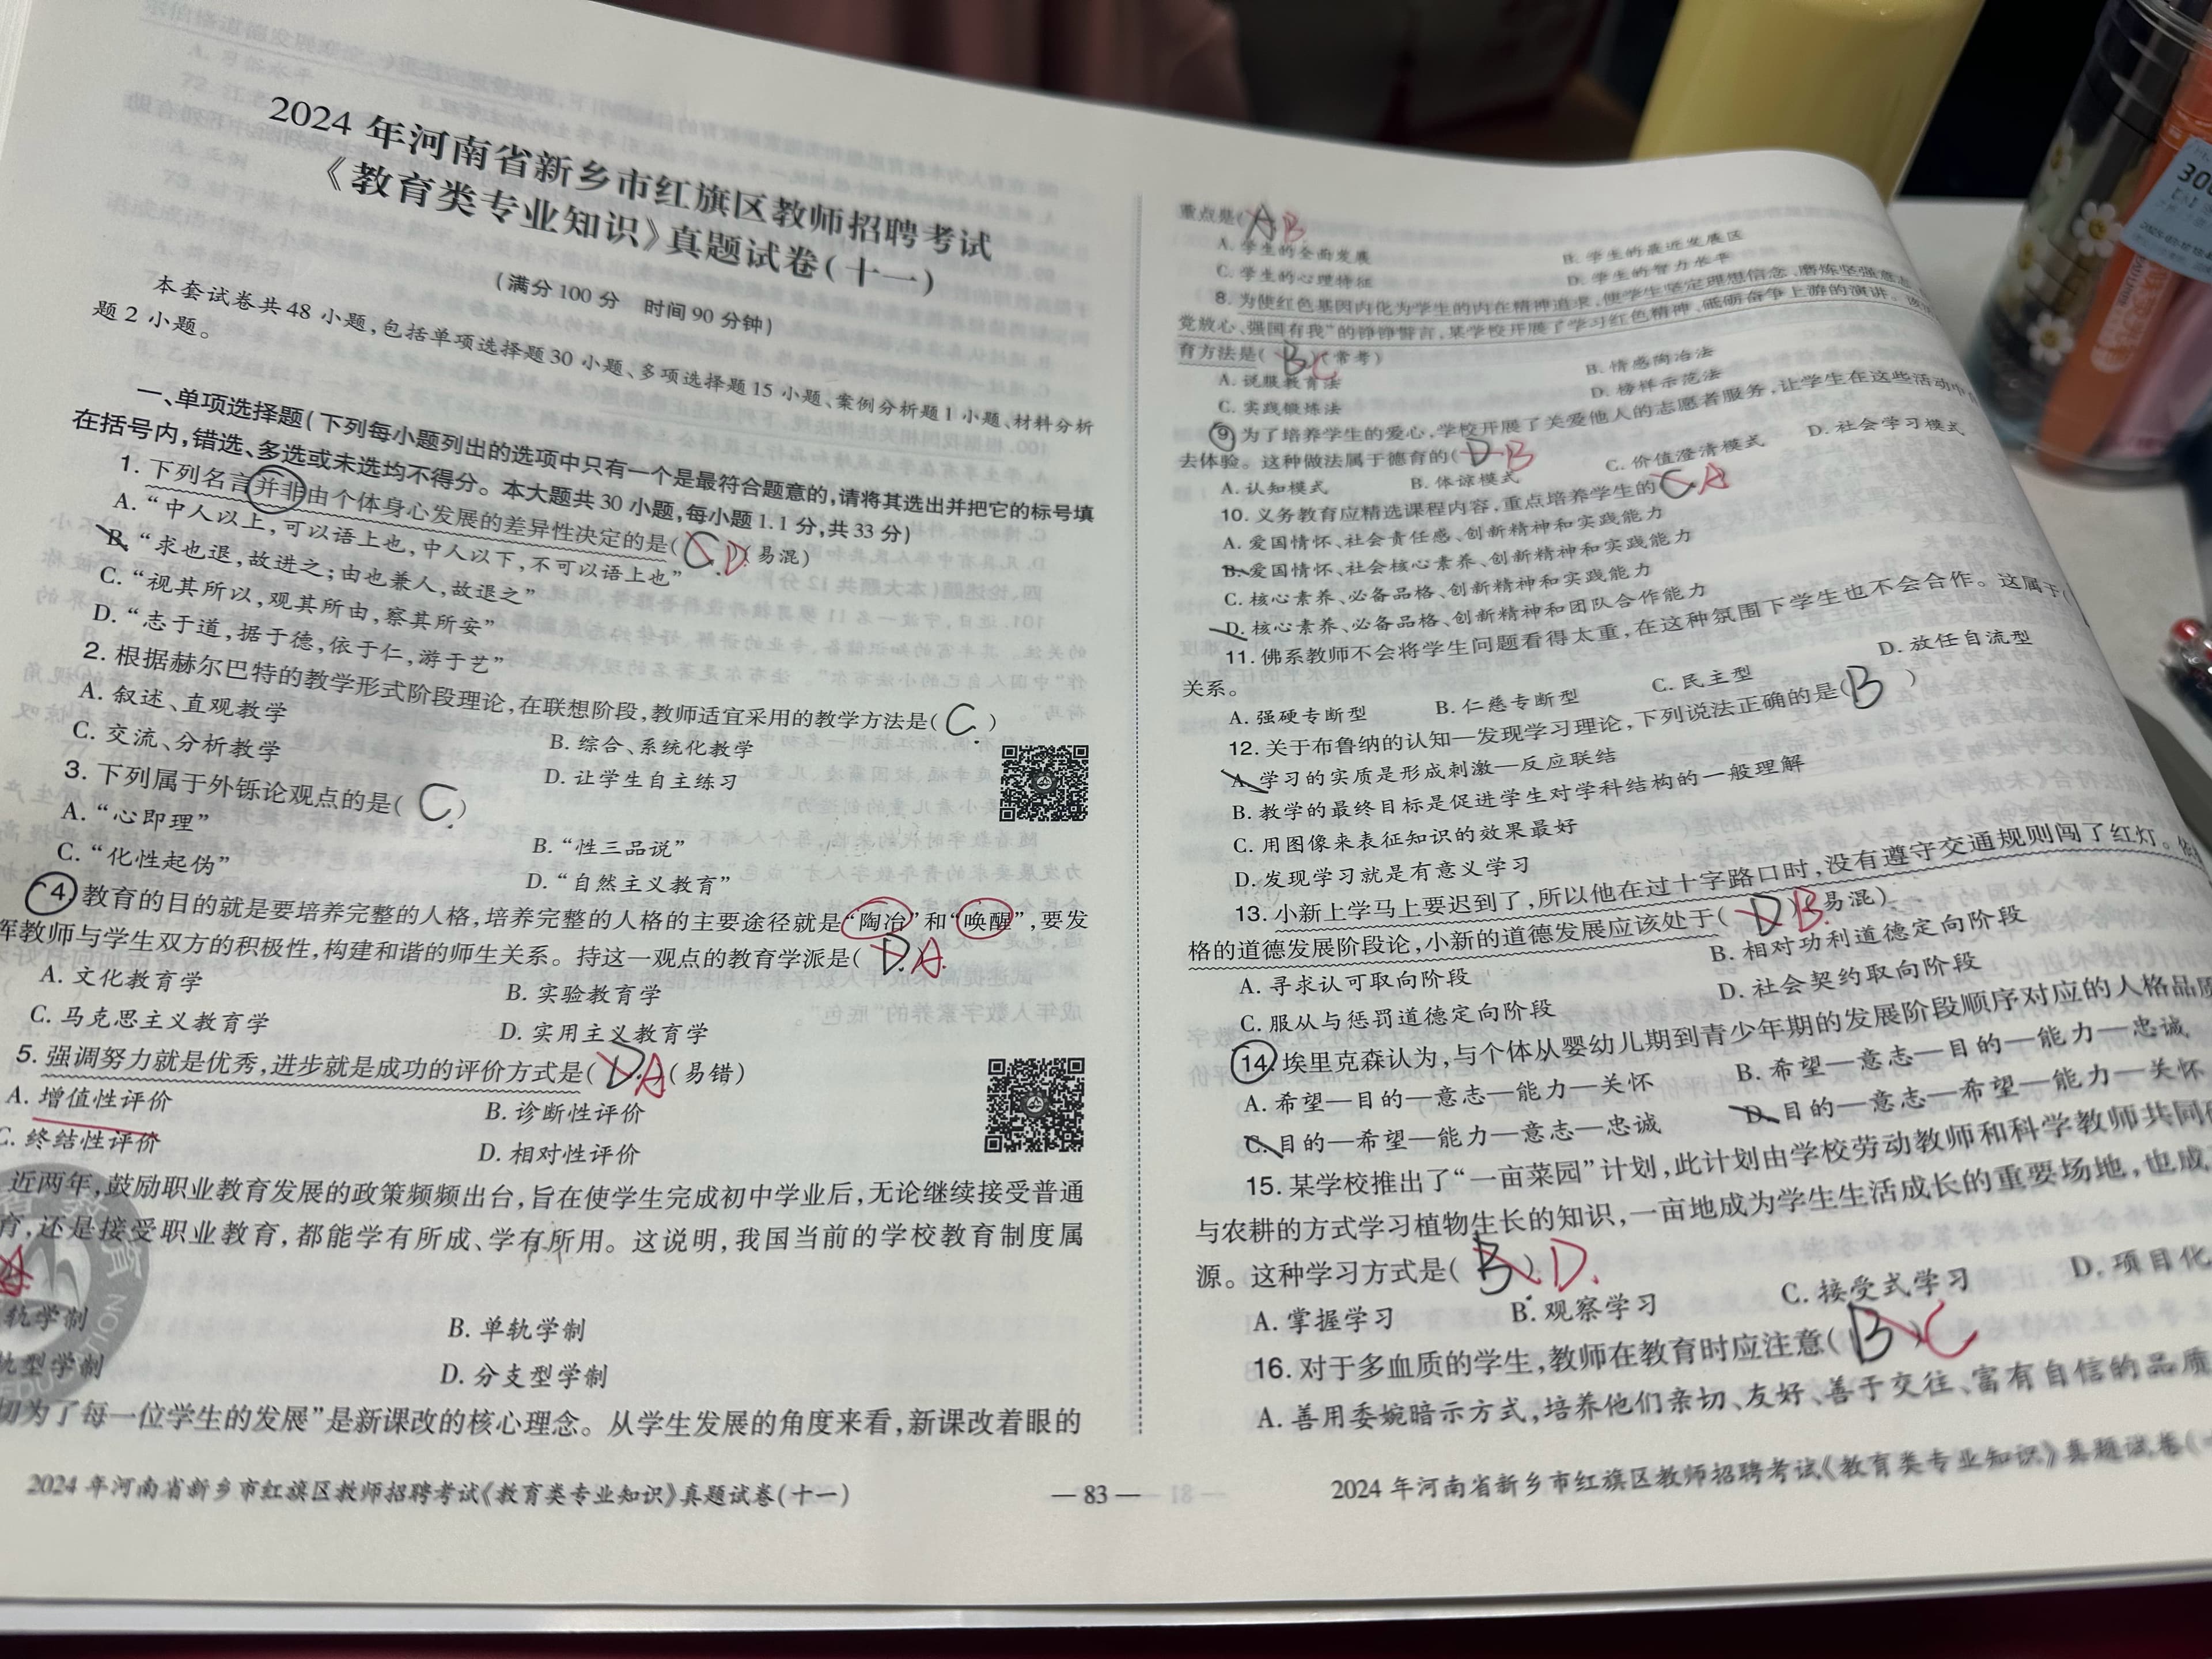 2024 年河南省新乡市红旗区教师招聘考试
《教育类专业知识》真题试卷(十一)
(满分 100 分　时间 90 分钟)
本套试卷共 48 小题,包括单项选择题 30 小题、多项选择题 15 小题、案例分析题 1 小题、材料分析
题 2 小题。
一、单项选择题(下列每小题列出的选项中只有一个是最符合题意的,请将其选出并把它的标号填
在括号内,错选、多选或未选均不得分。本大题共 30 小题,每小题 1.1 分,共 33 分)
1. 下列名言并非由个体身心发展的差异性决定的是( C D )(易混)
A. “中人以上,可以语上也,中人以下,不可以语上也”
B. “求也退,故进之;由也兼人,故退之”
C. “视其所以,观其所由,察其所安”
D. “志于道,据于德,依于仁,游于艺”
2. 根据赫尔巴特的教学形式阶段理论,在联想阶段,教师适宜采用的教学方法是( C )
A. 叙述、直观教学
B. 综合、系统化教学
C. 交流、分析教学
D. 让学生自主练习
3. 下列属于外铄论观点的是( C )
A. “心即理”
B. “性三品说”
C. “化性起伪”
D. “自然主义教育”
4. 教育的目的就是要培养完整的人格,培养完整的人格的主要途径就是“陶冶”和“唤醒”,要发
挥教师与学生双方的积极性,构建和谐的师生关系。持这一观点的教育学派是( D A )
A. 文化教育学
B. 实验教育学
C. 马克思主义教育学
D. 实用主义教育学
5. 强调努力就是优秀,进步就是成功的评价方式是( D A )(易错)
A. 增值性评价
B. 诊断性评价
C. 终结性评价
D. 相对性评价
近两年,鼓励职业教育发展的政策频频出台,旨在使学生完成初中学业后,无论继续接受普通
育,还是接受职业教育,都能学有所成、学有所用。这说明,我国当前的学校教育制度属
轨学制
B. 单轨学制
轨型学制
D. 分支型学制
切为了每一位学生的发展”是新课改的核心理念。从学生发展的角度来看,新课改着眼的
2024 年河南省新乡市红旗区教师招聘考试《教育类专业知识》真题试卷(十一)
— 83 —
重点是( A B
A. 学生的全面发展
B. 学生的最近发展区
C. 学生的心理特征
D. 学生的智力水平
8. 为使红色基因内化为学生的内在精神追求,使学生坚定理想信念,磨炼坚强意志
党放心、强国有我”的铮铮誓言,某学校开展了学习红色精神、砥砺奋争上游的演讲。该
育方法是( B C )(常考)
A. 说服教育法
B. 情感陶冶法
C. 实践锻炼法
D. 榜样示范法
9. 为了培养学生的爱心,学校开展了关爱他人的志愿者服务,让学生在这些活动中
去体验。这种做法属于德育的( D B
A. 认知模式
B. 体谅模式
C. 价值澄清模式
D. 社会学习模式
10. 义务教育应精选课程内容,重点培养学生的( C A
A. 爱国情怀、社会责任感、创新精神和实践能力
B. 爱国情怀、社会核心素养、创新精神和实践能力
C. 核心素养、必备品格、创新精神和实践能力
D. 核心素养、必备品格、创新精神和团队合作能力
11. 佛系教师不会将学生问题看得太重,在这种氛围下学生也不会合作。这属于(
关系。
A. 强硬专断型
B. 仁慈专断型
C. 民主型
D. 放任自流型
12. 关于布鲁纳的认知—发现学习理论,下列说法正确的是( B )
A. 学习的实质是形成刺激—反应联结
B. 教学的最终目标是促进学生对学科结构的一般理解
C. 用图像来表征知识的效果最好
D. 发现学习就是有意义学习
13. 小新上学马上要迟到了,所以他在过十字路口时,没有遵守交通规则闯了红灯。依
格的道德发展阶段论,小新的道德发展应该处于( D B )(易混)
A. 寻求认可取向阶段
B. 相对功利道德定向阶段
C. 服从与惩罚道德定向阶段
D. 社会契约取向阶段
14. 埃里克森认为,与个体从婴幼儿期到青少年期的发展阶段顺序对应的人格品质
A. 希望—目的—意志—能力—关怀
B. 希望—意志—目的—能力—忠诚
C. 目的—希望—能力—意志—忠诚
D. 目的—意志—希望—能力—关怀
15. 某学校推出了“一亩菜园”计划,此计划由学校劳动教师和科学教师共同
与农耕的方式学习植物生长的知识,一亩地成为学生生活成长的重要场地,也成
源。这种学习方式是( B ) D
A. 掌握学习
B. 观察学习
C. 接受式学习
D. 项目化
16. 对于多血质的学生,教师在教育时应注意( B ) C
A. 善用委婉暗示方式,培养他们亲切、友好、善于交往、富有自信的品质
2024 年河南省新乡市红旗区教师招聘考试《教育类专业知识》真题试卷(